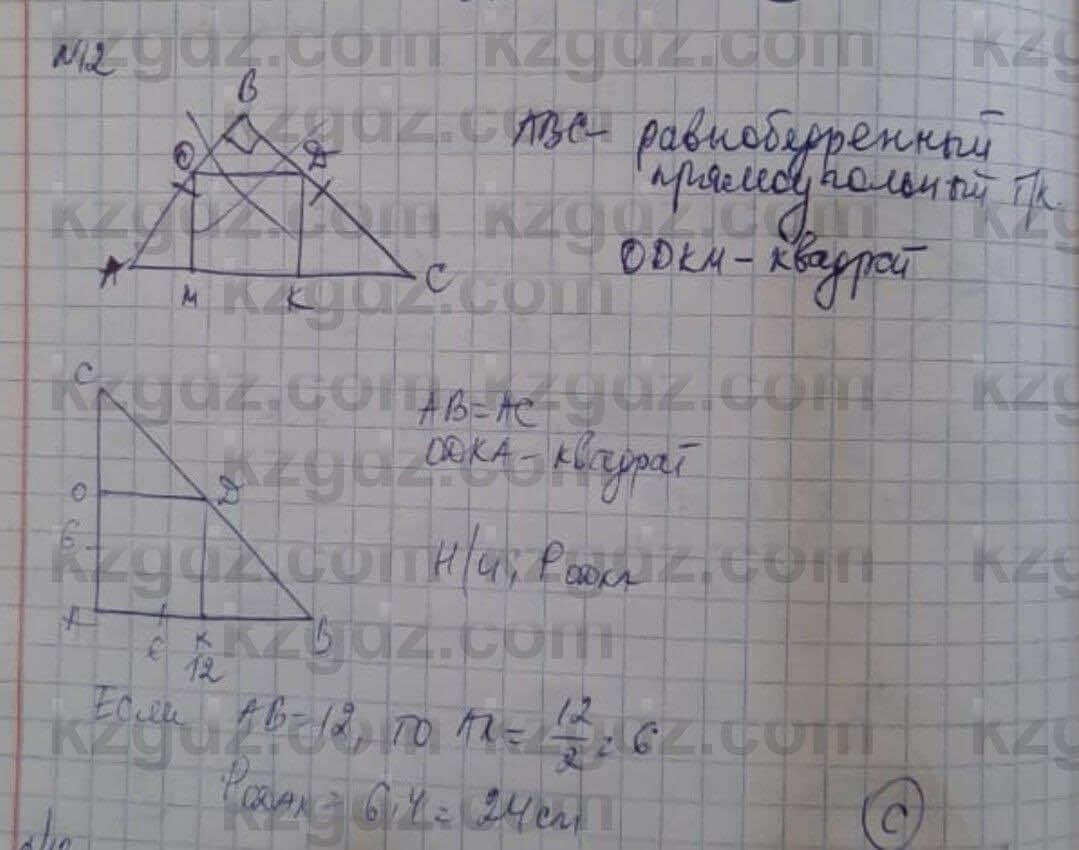 №12
B
O D
A M K C
ABC - равнобедренный
прямоугольный тр.
ODKM - квадрат
C
O D
6
A K B
12
AB=AC
ODKA - квадрат
Н/и; P
Если AB=12, то AK = 12/2 = 6
P = 6·4 = 24 см
C
kzgdz.com